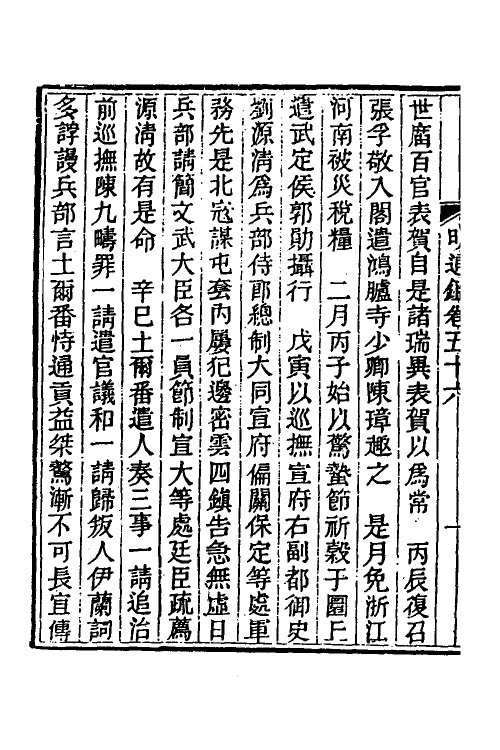 明通鑑卷五十六
一
世廟百官表賀自是諸瑞異表賀以爲常　丙辰復召
張孚敬入閣遣鴻臚寺少卿陳璋趣之　是月免浙江
河南被災稅糧　二月丙子始以驚蟄節祈穀于圜丘
遣武定侯郭勛攝行　戊寅以巡撫宣府右副都御史
劉源淸爲兵部侍郎總制大同宣府偏關保定等處軍
務先是北寇謀屯套內屢犯邊密雲四鎭告急無虛日
兵部請簡文武大臣各一員節制宣大等處廷臣疏薦
源淸故有是命　辛巳土爾番遣人奏三事一請追治
前巡撫陳九疇罪一請遣官議和一請歸叛人伊蘭詞
多誖謾兵部言土爾番恃通貢益桀驁漸不可長宜傳